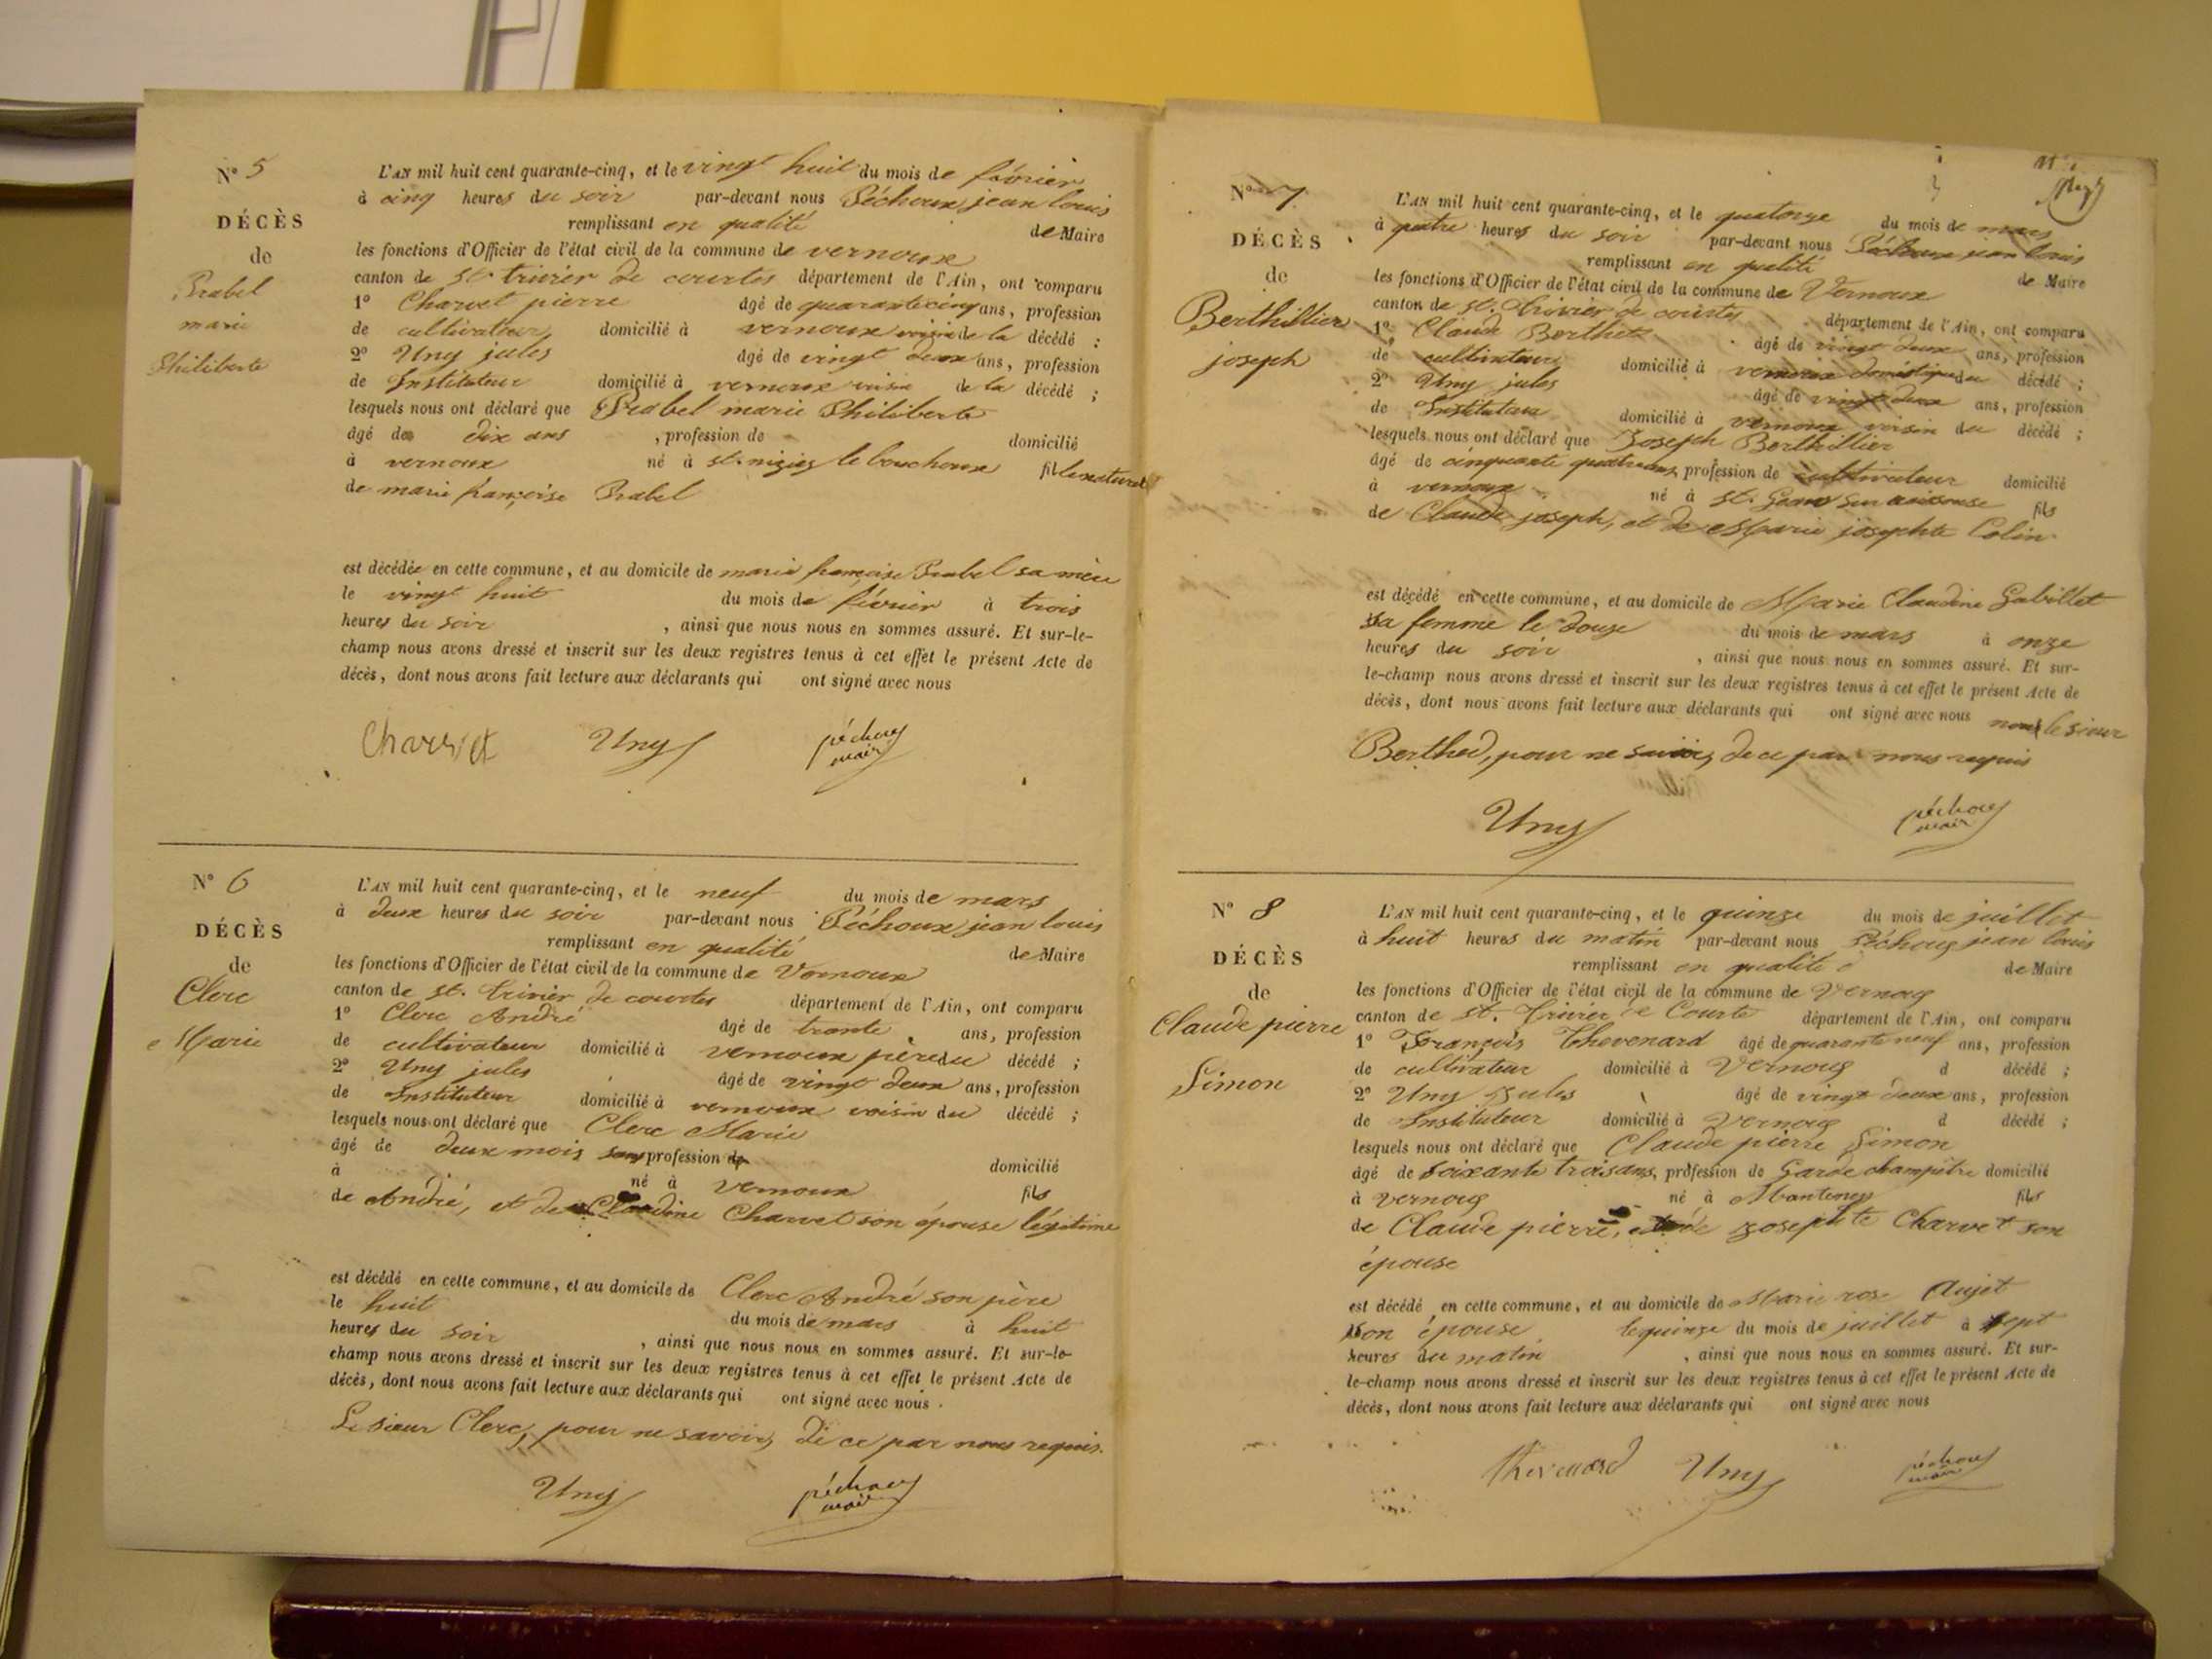 Nº 5
DÉCÈS
de
Prabel
marie
Philiberte
L'AN mil huit cent quarante-cinq, et le vingt huit du mois de février
à cinq heures du soir par-devant nous Péchoux jean louis
remplissant en qualité de Maire
les fonctions d'Officier de l'état civil de la commune de vernoux
canton de St. trivier de courtes département de l'Ain, ont comparu
1º Charvet pierre âgé de quarante cinq ans, profession
de cultivateur domicilié à vernoux voisin de la décédé ;
2º Uny jules âgé de vingt deux ans, profession
de Instituteur domicilié à vernoux voisin de la décédé ;
lesquels nous ont déclaré que Prabel marie Philiberte
âgé de dix ans , profession de domicilié
à vernoux né à st. nizier le bouchoux fille naturel
de marie françoise Prabel
est décédée en cette commune, et au domicile de marie françoise Prabel sa mère
le vingt huit du mois de février à trois
heures du soir , ainsi que nous nous en sommes assuré. Et sur-le-
champ nous avons dressé et inscrit sur les deux registres tenus à cet effet le présent Acte de
décès, dont nous avons fait lecture aux déclarants qui ont signé avec nous
Charvet Uny péchoux
maire
Nº 6
DÉCÈS
de
Clerc
Marie
L'AN mil huit cent quarante-cinq, et le neuf du mois de mars
à deux heures du soir par-devant nous Péchoux jean louis
remplissant en qualité de Maire
les fonctions d'Officier de l'état civil de la commune de Vernoux
canton de st. trivier de courtes département de l'Ain, ont comparu
1º Clerc André âgé de trente ans, profession
de cultivateur domicilié à vernoux père du décédé ;
2º Uny jules âgé de vingt deux ans, profession
de Instituteur domicilié à vernoux voisin du décédé ;
lesquels nous ont déclaré que Clerc Marie
âgé de deux mois sans profession de domicilié
à né à vernoux fils
de André, et de Claudine Charvet son épouse légitime
est décédé en cette commune, et au domicile de Clerc André son père
le huit du mois de mars à huit
heures du soir , ainsi que nous nous en sommes assuré. Et sur-le-
champ nous avons dressé et inscrit sur les deux registres tenus à cet effet le présent Acte de
décès, dont nous avons fait lecture aux déclarants qui ont signé avec nous.
Le sieur Clerc, pour ne savoir, de ce par nous requis.
Uny péchoux
maire
Nº 7
DÉCÈS
de
Berthillier
joseph
L'AN mil huit cent quarante-cinq, et le quatorze du mois de mars
à quatre heures du soir par-devant nous Péchoux jean louis
remplissant en qualité de Maire
les fonctions d'Officier de l'état civil de la commune de Vernoux
canton de st. trivier de courtes département de l'Ain, ont comparu
1º Claude Berthet âgé de vingt deux ans, profession
de cultivateur domicilié à vernoux domestique du décédé ;
2º Uny jules âgé de vingt deux ans, profession
de Instituteur domicilié à vernoux voisin du décédé ;
lesquels nous ont déclaré que Joseph Berthillier
âgé de cinquante quatre ans, profession de cultivateur domicilié
à vernoux né à st. Jean sur reissouse fils
de Claude joseph, et de Marie josephte Colin
est décédé en cette commune, et au domicile de Marie Claudine Gabillet
sa femme le douze du mois de mars à onze
heures du soir , ainsi que nous nous en sommes assuré. Et sur-
le-champ nous avons dressé et inscrit sur les deux registres tenus à cet effet le présent Acte de
décès, dont nous avons fait lecture aux déclarants qui ont signé avec nous non le sieur
Berthed, pour ne savoir, de ce par nous requis
Uny péchoux
maire
Nº 8
DÉCÈS
de
Claude pierre
Simon
L'AN mil huit cent quarante-cinq, et le quinze du mois de juillet
à huit heures du matin par-devant nous Péchoux jean louis
remplissant en qualité de Maire
les fonctions d'Officier de l'état civil de la commune de Vernoux
canton de st. Trivier de Courte département de l'Ain, ont comparu
1º François Thevenard âgé de quarante neuf ans, profession
de cultivateur domicilié à Vernoux d décédé ;
2º Uny Jules âgé de vingt deux ans, profession
de Instituteur domicilié à Vernoux d décédé ;
lesquels nous ont déclaré que Claude pierre Simon
âgé de soixante trois ans, profession de Garde champêtre domicilié
à vernoux né à Mantenay fils
de Claude pierre, et de josephte Charvet son
épouse
est décédé en cette commune, et au domicile de Marie rose Aujet
son épouse le quinze du mois de juillet à sept
heures du matin , ainsi que nous nous en sommes assuré. Et sur-
le-champ nous avons dressé et inscrit sur les deux registres tenus à cet effet le présent Acte de
décès, dont nous avons fait lecture aux déclarants qui ont signé avec nous
Thevenard Uny péchoux
maire